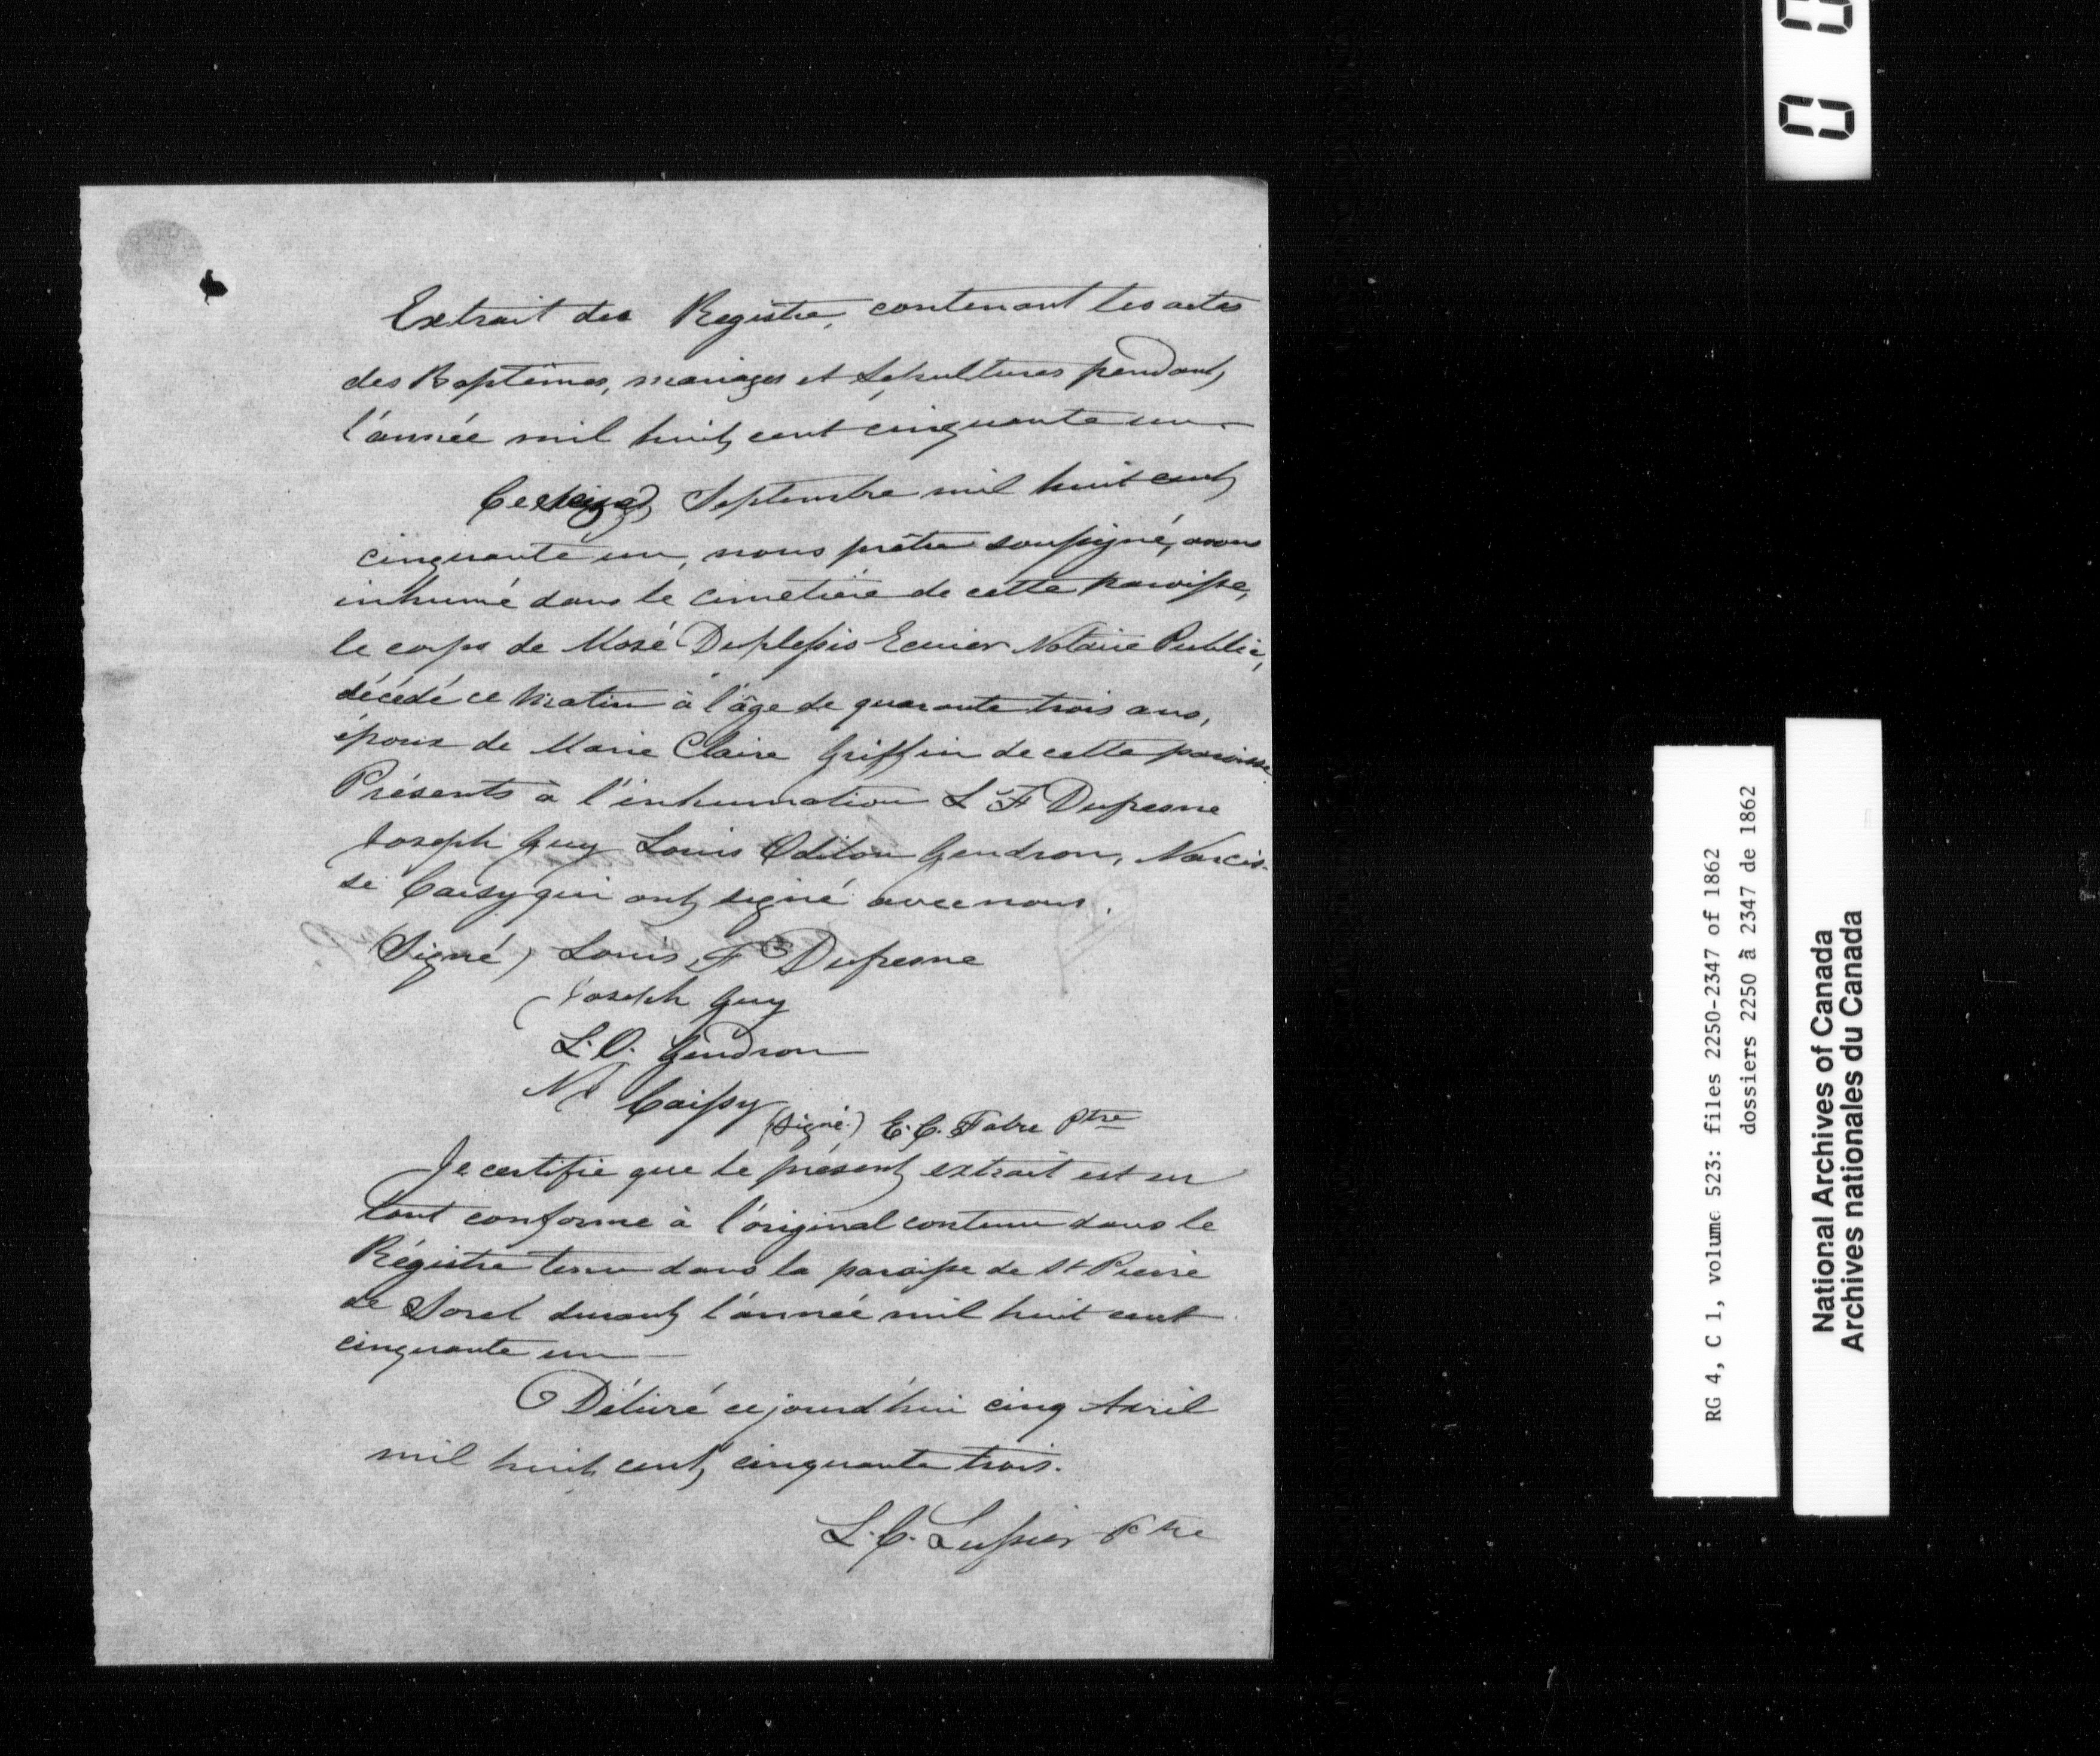 Extrait des Registre, contenant les actes
des Baptêmes, mariages et Sépultures pendant
l'année mil huit cent cinquante un.
Ce seize Septembre mil huit cent
cinquante un, nous prêtre soussigné, avons
inhumé dans le cimetière de cette paroisse,
le corps de Mosé Duplessis Ecuier Notaire Public,
décédé ce matin à l'âge de quarante trois ans,
époux de Marie Claire Griffin de cette paroisse.
Présents à l'inhumation L F Dufresne
Joseph Guy Louis Odilon Gendron, Narcis-
se Caisy qui ont signé avec nous.
(Signé) Louis F Dufresne
Joseph Guy
L. O. Gendron
Caissy
(signé.) E. C. Fabre Ptre
Je certifie que le présent extrait est en
tout conforme à l'original contenu dans le
Régistre tenu dans la paroisse de St Pierre
de Sorel durant l'année mil huit cent
cinquante un —
Délivré ce jourd'hui cinq Avril
mil huit cent cinquante trois.
L. C. Lussier Ptre
RG 4, C 1, volume 523: files 2250-2347 of 1862
dossiers 2250 à 2347 de 1862
National Archives of Canada
Archives nationales du Canada
0 0